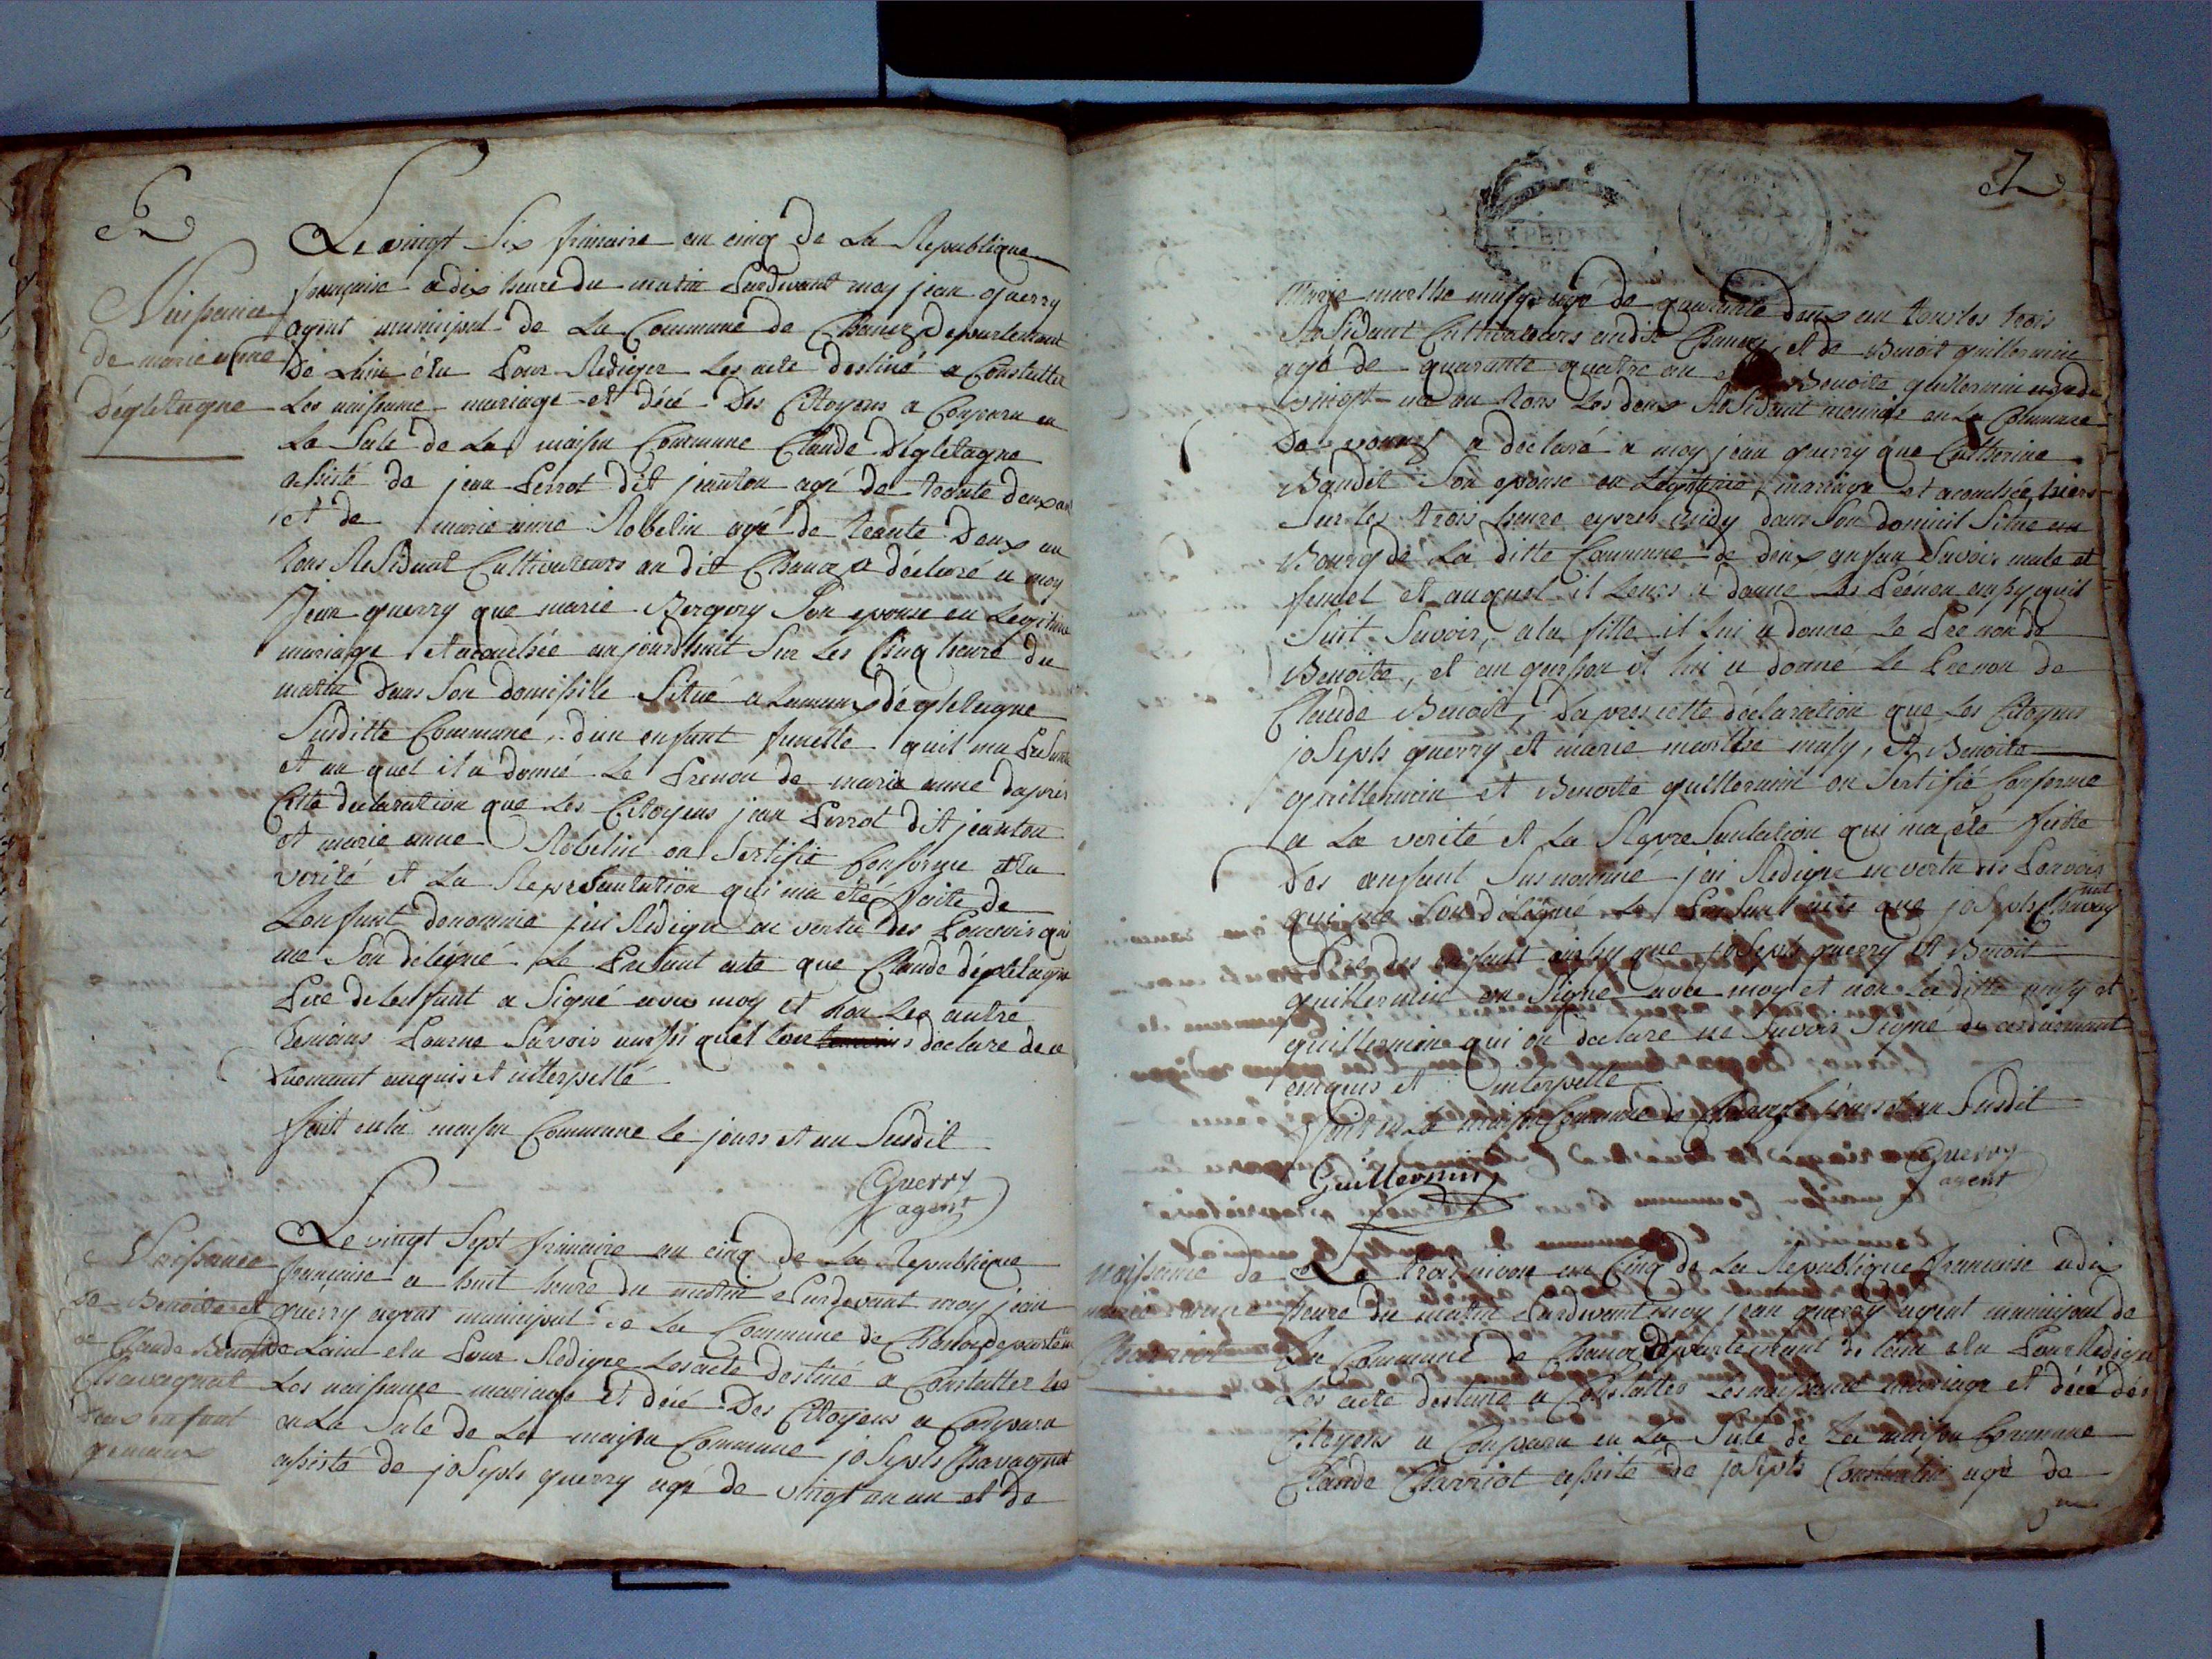 6
Naissance
de marie anne
dégletagne
Le vingt Six frimaire an cinq de La Republique
française a dix heure du matin Pardevant moy jean guerry
agent municipal de La Commune de Chanoz Departement
De Lain élu Pour Rediger Les acte destiné a Constatter
Les naissance mariage et décé Des Citoyens a Comparu en
La Sale de La maison Commune Claude Dégletagne
assisté de jean Perrot dit jeanton agé de trante deux an
et de marie anne Robelin agé de trante Deux an
Tous Residant Cultivateurs au dit Chanoz a déclaré a moy
Jean guerry que marie Bergery Son epouse en Legitime
mariage et acouchée aujourdhuit Sur Les Cinq heure du
matin dans Son domissile Situé a Lamaux dégletagne
Susditte Commune, dun enfant fumelle quil ma Presanté
et au quel il a donné Le Prenon de marie anne daprés
Cette declaration que Les Citoyens jean Perrot dit jeanton
et marie anne Robelin on Sertifié Conforme a la
verité et La Representation qui ma été faite de
Lenfant denommé jai Redigé en vertu des Pouvoir qui
me Son délégué Le Présant acte que Claude dégletagne
Pere de lenfant a Signé avec moy et non Les autre
temoins Pourne Savoir aussi quil declare de ce
duemant enquis et interpellé
fait en la maison Commune Le jours et an Susdit
Guerry
agent
Naissance
de Benoite et
de Claude Benoit
Chavagnat
deux enfant
gemaux
Le vingt Sept frimaire an cinq de La Republique
française a huit heure du matin Pardevant moy jean
guérry agent municipal de La Commune de Chanoz departemt
de Lain elu Pour Redigre Les acte destiné a Constatter les
Les naissance mariage et décé Des Citoyens a Comparu
en La Sale de La maison Commune joSeph Chavagnat
assisté de joSeph guerry agé de vingt un an et de
7
Marie marthe musy agé de quarante deux an tous les trois
ReSidant Cultivateurs audit Chanoz, et de Benoit guillermin
agé de quarante quatre an et Benoite guillermin agé de
vingt un an Tous Les deux ReSidant en La Commune
De vonnas a déclaré a moy jean guerry que Catherine
Baudet Son epouse en Legitime mariage et acouchée hiers
Sur les trois heure apres midy dans Son domicil Situé au
Bourg de La ditte Commune de deux anfan Savoir male et
femel et auquel il Leurs a donné Les Prénon ainsy quil
Suit Savoir, a la fille il Lui a donné Le Prenon de
Benoite, et au garsson il lui a donné Le Prenon de
Claude Benoit, Dapres cette déclaration que Les Citoyens
joSeph guerry et marie marthe musy, et Benoite
guillermin et Benoite guillermin on Sertifié Conforme
a La verité et La RepreSantation qui ma été faitte
Des anfant Susnommé jai Redigre en vertu des Pouvoir
qui me Son délégué Le PreSant acte que joSeph Chavagnat
Pere des enfant ainsy que joSeph guerry et Benoit
guillermin on Signé avec moy et non La ditte musy et
guillermine qui on declare ne Savoir Signé de ce duemant
enquis et interpellé
Fait en La maison Commune de Chanoz Le jours et an Susdit
Guillermin
Guerry
agent
naissance de
marie anne
Charriot
Le trois nivose an Cinq de La Republique francaise a dix
heure du matin Pardevant moy jean guerry agent municipal de
La Commune de Chanoz Departement de Lain elu Pour Rediger
Les acte destiné a Constatter Les naissance mariage et décé des
Citoyens a Comparu en La Sale de La maison Commune
Claude Charriot assisté de joSeph Constantin agé de